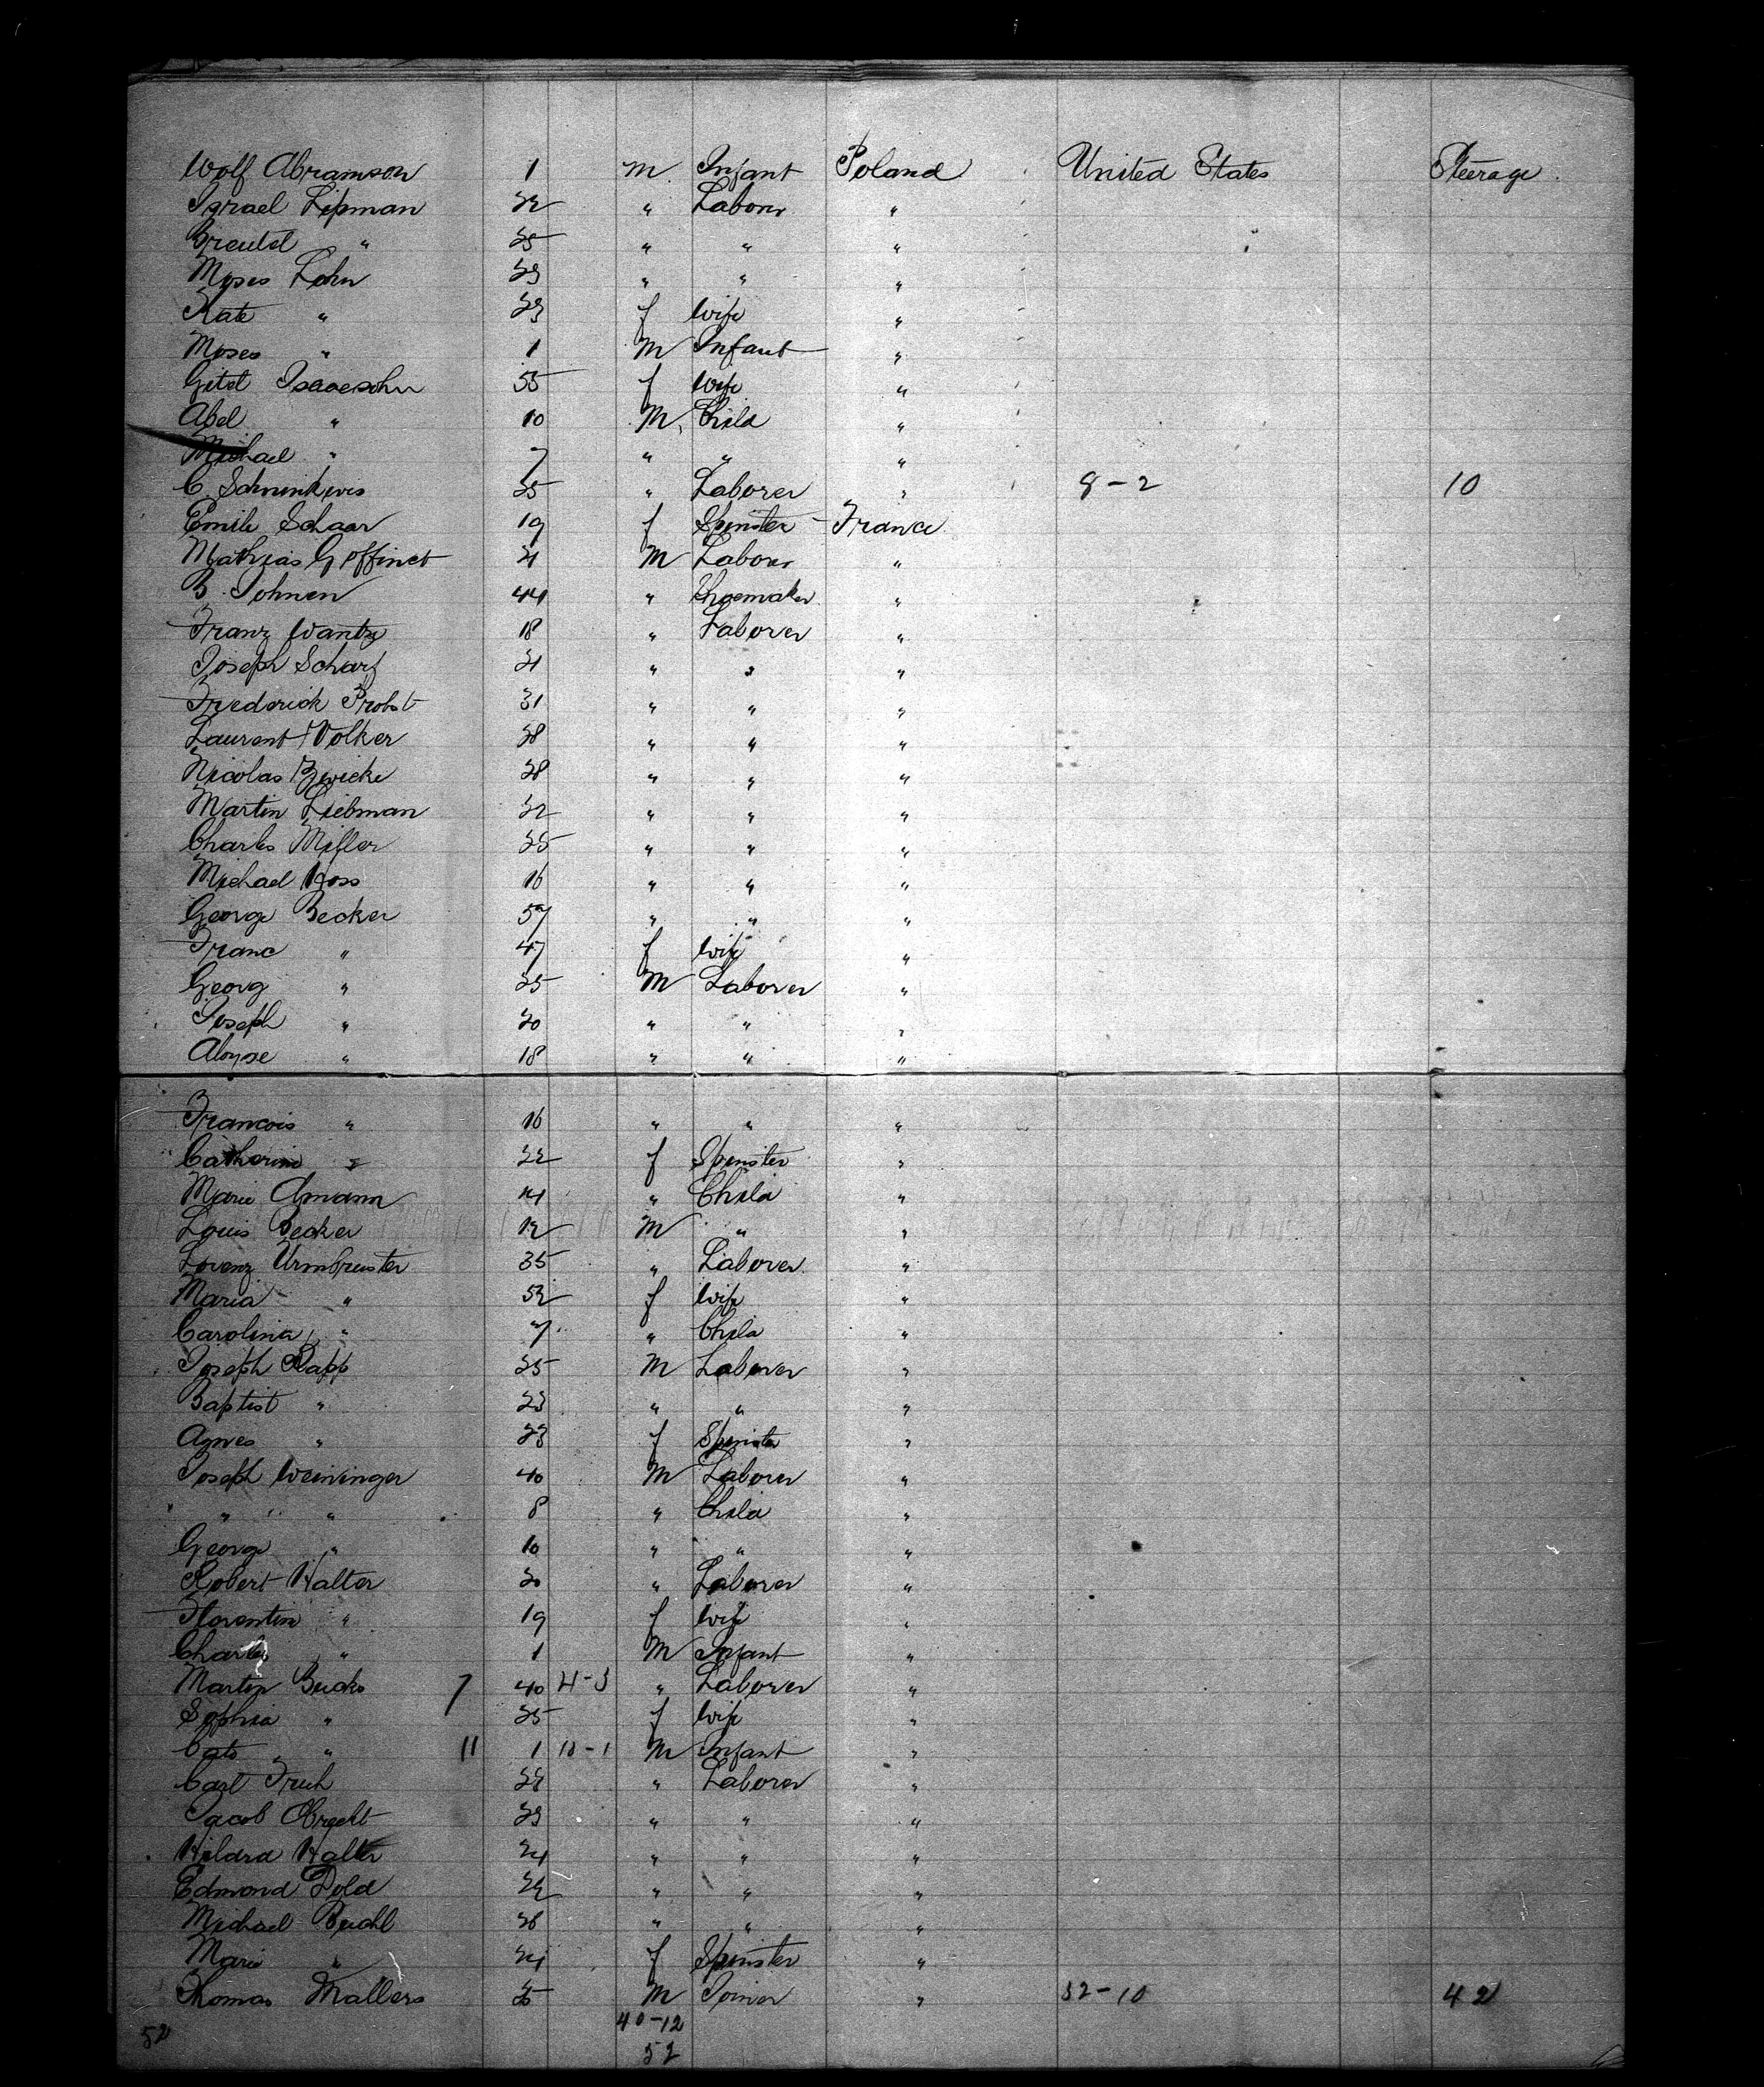 Wolf Abramson 1 M Infant Poland United States Steerage
Israel Lipman 22 " Laborer "
Breutel " 25 " " "
Moses Lohn 23 " " "
Kate " 23 f Wife "
Moses " 1 M Infant "
Gitel Isaacsohn 55 f Wife "
Abel " 10 M. Child "
Michael " 7 " " "
C. 25 " Laborer " 8-2 10
Emile Schaar 19 f Spinster France
Mathias Goffinet 21 M Laborer "
B. Johnen 44 " Shoemaker "
Franz Wantz 18 " Laborer "
Joseph Scharf 21 " " "
Frederick Probst 31 " " "
Laurent Volker 28 " " "
Nicolas Zwicke 28 " " "
Martin Liebman 32 " " "
Charles Mifler 25 " " "
Michael Hoss 16 " " "
George Becker 57 " " "
Franc " 47 f Wife "
Georg " 25 M Laborer "
Joseph " 20 " " "
Aloyse " 18 " " "
Francois " 16 " " "
Catherine " 22 f Spinster "
Marie Amann 14 " Child "
Louis Becker 12 M " "
Lorenz Urmbruster 35 " Laborer "
Maria " 32 f Wife "
Carolina " 7 " Child "
Joseph Rapp 25 M Laborer "
Baptist " 23 " " "
Agnes " 23 f Spinster "
Joseph Weininger 40 M Laborer "
" " " 8 " Child "
George " 10 " " "
Robert Halter 30 " Laborer "
Florentine " 19 f Wife "
Charles " 1 M Infant "
Martin Bucks 7 40 21-3 " Laborer "
Sophia " 25 f Wife "
Cato " 11 1 10-1 M Infant "
Carl Fruh 28 " Laborer "
Jacob Obrecht 23 " " "
Hilara Halter 24 " " "
Edmond Dold 22 " " "
Michael Buchl 28 " " "
Marie " 24 f Spinster "
Thomas Mallers 25 M Joiner " 32-10 42
40-12
52 52